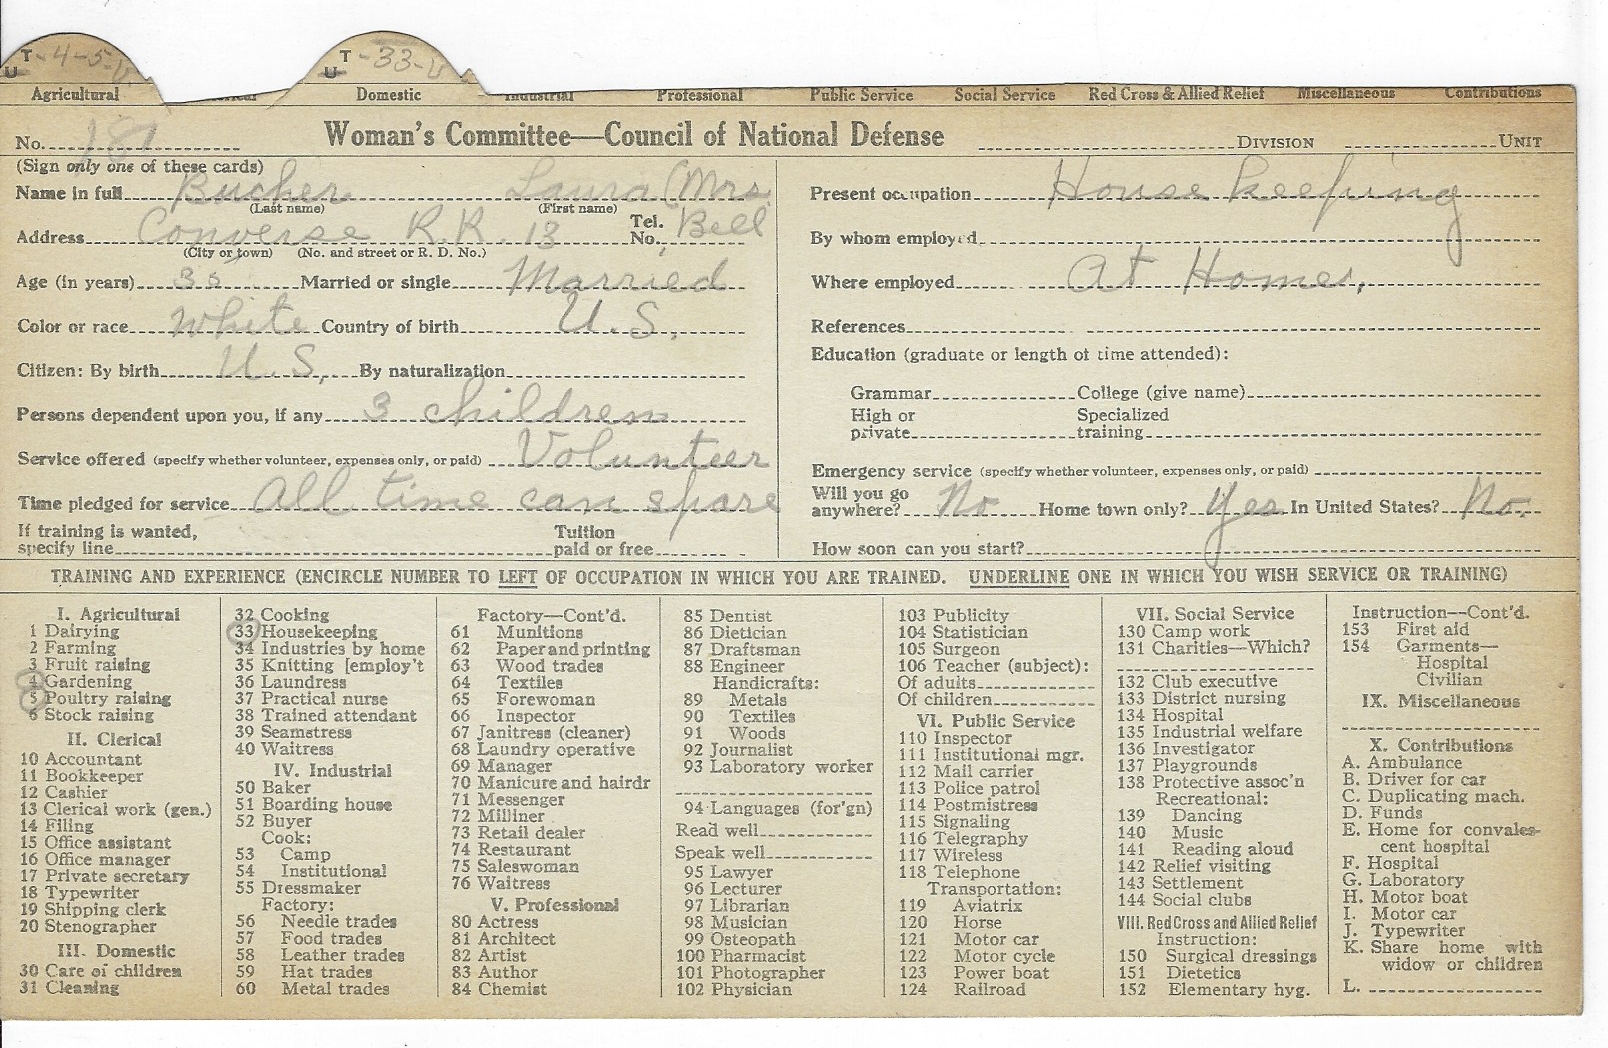 T U -4-5-V T U -33-V
Agricultural Domestic Industrial Professional Public Service Social Service Red Cross & Allied Relief Miscellaneous Contributions
No. 181 Woman's Committee—Council of National Defense DIVISION UNIT
(Sign only one of these cards)
Name in full Bucher Laura (Mrs
(Last name) (First name)
Address Converse R.R. 13 Tel. No. Bell
(City or town) (No. and street or R. D. No.)
Age (in years) 35 Married or single Married
Color or race White Country of birth U. S.
Citizen: By birth U. S. By naturalization
Persons dependent upon you, if any 3 children
Service offered (specify whether volunteer, expenses only, or paid) Volunteer
Time pledged for service all time can spare
If training is wanted, specify line Tuition paid or free
Present occupation House keeping
By whom employed
Where employed at Home.
References
Education (graduate or length of time attended):
Grammar College (give name)
High or private Specialized training
Emergency service (specify whether volunteer, expenses only, or paid)
Will you go anywhere? No Home town only? yes In United States? No.
How soon can you start?
TRAINING AND EXPERIENCE (ENCIRCLE NUMBER TO LEFT OF OCCUPATION IN WHICH YOU ARE TRAINED. UNDERLINE ONE IN WHICH YOU WISH SERVICE OR TRAINING)
I. Agricultural
1 Dairying
2 Farming
3 Fruit raising
4 Gardening
5 Poultry raising
6 Stock raising
II. Clerical
10 Accountant
11 Bookkeeper
12 Cashier
13 Clerical work (gen.)
14 Filing
15 Office assistant
16 Office manager
17 Private secretary
18 Typewriter
19 Shipping clerk
20 Stenographer
III. Domestic
30 Care of children
31 Cleaning
32 Cooking
33 Housekeeping
34 Industries by home
35 Knitting [employ't
36 Laundress
37 Practical nurse
38 Trained attendant
39 Seamstress
40 Waitress
IV. Industrial
50 Baker
51 Boarding house
52 Buyer
Cook:
53 Camp
54 Institutional
55 Dressmaker
Factory:
56 Needle trades
57 Food trades
58 Leather trades
59 Hat trades
60 Metal trades
Factory—Cont'd.
61 Munitions
62 Paper and printing
63 Wood trades
64 Textiles
65 Forewoman
66 Inspector
67 Janitress (cleaner)
68 Laundry operative
69 Manager
70 Manicure and hairdr
71 Messenger
72 Milliner
73 Retail dealer
74 Restaurant
75 Saleswoman
76 Waitress
V. Professional
80 Actress
81 Architect
82 Artist
83 Author
84 Chemist
85 Dentist
86 Dietician
87 Draftsman
88 Engineer
Handicrafts:
89 Metals
90 Textiles
91 Woods
92 Journalist
93 Laboratory worker
94 Languages (for'gn)
Read well
Speak well
95 Lawyer
96 Lecturer
97 Librarian
98 Musician
99 Osteopath
100 Pharmacist
101 Photographer
102 Physician
103 Publicity
104 Statistician
105 Surgeon
106 Teacher (subject):
Of adults
Of children
VI. Public Service
110 Inspector
111 Institutional mgr.
112 Mail carrier
113 Police patrol
114 Postmistress
115 Signaling
116 Telegraphy
117 Wireless
118 Telephone
Transportation:
119 Aviatrix
120 Horse
121 Motor car
122 Motor cycle
123 Power boat
124 Railroad
VII. Social Service
130 Camp work
131 Charities—Which?
132 Club executive
133 District nursing
134 Hospital
135 Industrial welfare
136 Investigator
137 Playgrounds
138 Protective assoc'n
Recreational:
139 Dancing
140 Music
141 Reading aloud
142 Relief visiting
143 Settlement
144 Social clubs
VIII. Red Cross and Allied Relief
Instruction:
150 Surgical dressings
151 Dietetics
152 Elementary hyg.
Instruction—Cont'd.
153 First aid
154 Garments—
Hospital
Civilian
IX. Miscellaneous
X. Contributions
A. Ambulance
B. Driver for car
C. Duplicating mach.
D. Funds
E. Home for convales-
cent hospital
F. Hospital
G. Laboratory
H. Motor boat
I. Motor car
J. Typewriter
K. Share home with
widow or children
L.